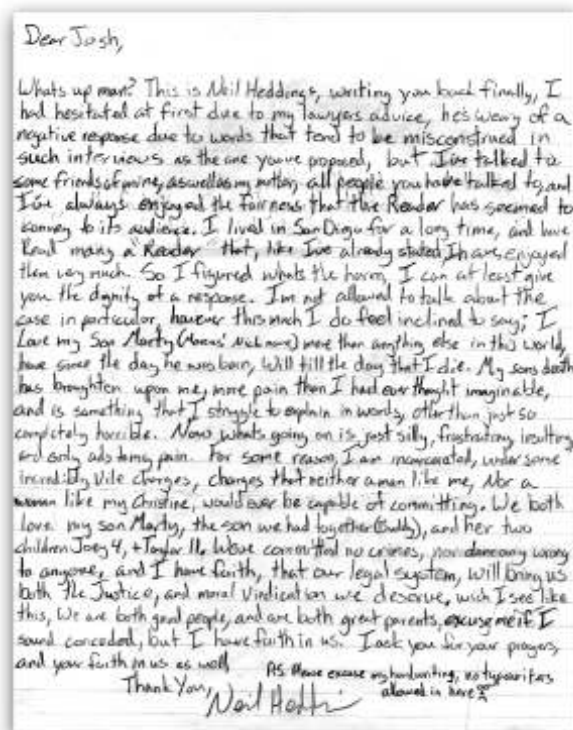 Dear Josh,
Whats up man? This is Neil Heddings, writing you back finally, I
had hesitated at first due to my lawyers advice, he's weary of a
negative response due to words that tend to be misconstrued in
such interviews as the one you've proposed, but I've talked to
some friends of mine, as well as my mother, all people you have talked to, and
I've always enjoyed the fairness that the Reader has seemed to
convey to its audience. I lived in San Diego for a long time, and have
Read many a "Reader" that, like I've already stated, I have enjoyed
them very much. So I figured whats the harm, I can at least give
you the dignity of a response. I'm not allowed to talk about the
case in particular, however this much I do feel inclined to say; I
Love my Son Marty (Nick name) more than anything else in this world,
have since the day he was born, Will till the day that I die. My sons death
has broughten upon me, more pain than I had ever thought imaginable,
and is something that I struggle to explain in words, other than just so
completely horrible. Now whats going on is just silly, frustrating, insulting,
and only adds to my pain. For some reason, I am incarcerated, under some
incredibly Vile charges, charges that neither a man like me, Nor a
woman like my Christine, would ever be capable of committing. We both
love my son Marty, the son we had together (Buddy), and her two
children Joey 4, + Taylor 11. Weve committed no crimes, nor done any wrong
to anyone, and I have faith, that our legal system, will bring us
both the Justice, and moral Vindication we deserve, wich I see like
this, We are both good people, and are both great parents, excuse me if I
sound conceded, but I have faith in us. I ask you for your prayers,
and your faith in us as well
P.S. Please excuse my handwriting, no typewriters
allowed in here
Thank You,
Neil Heddi